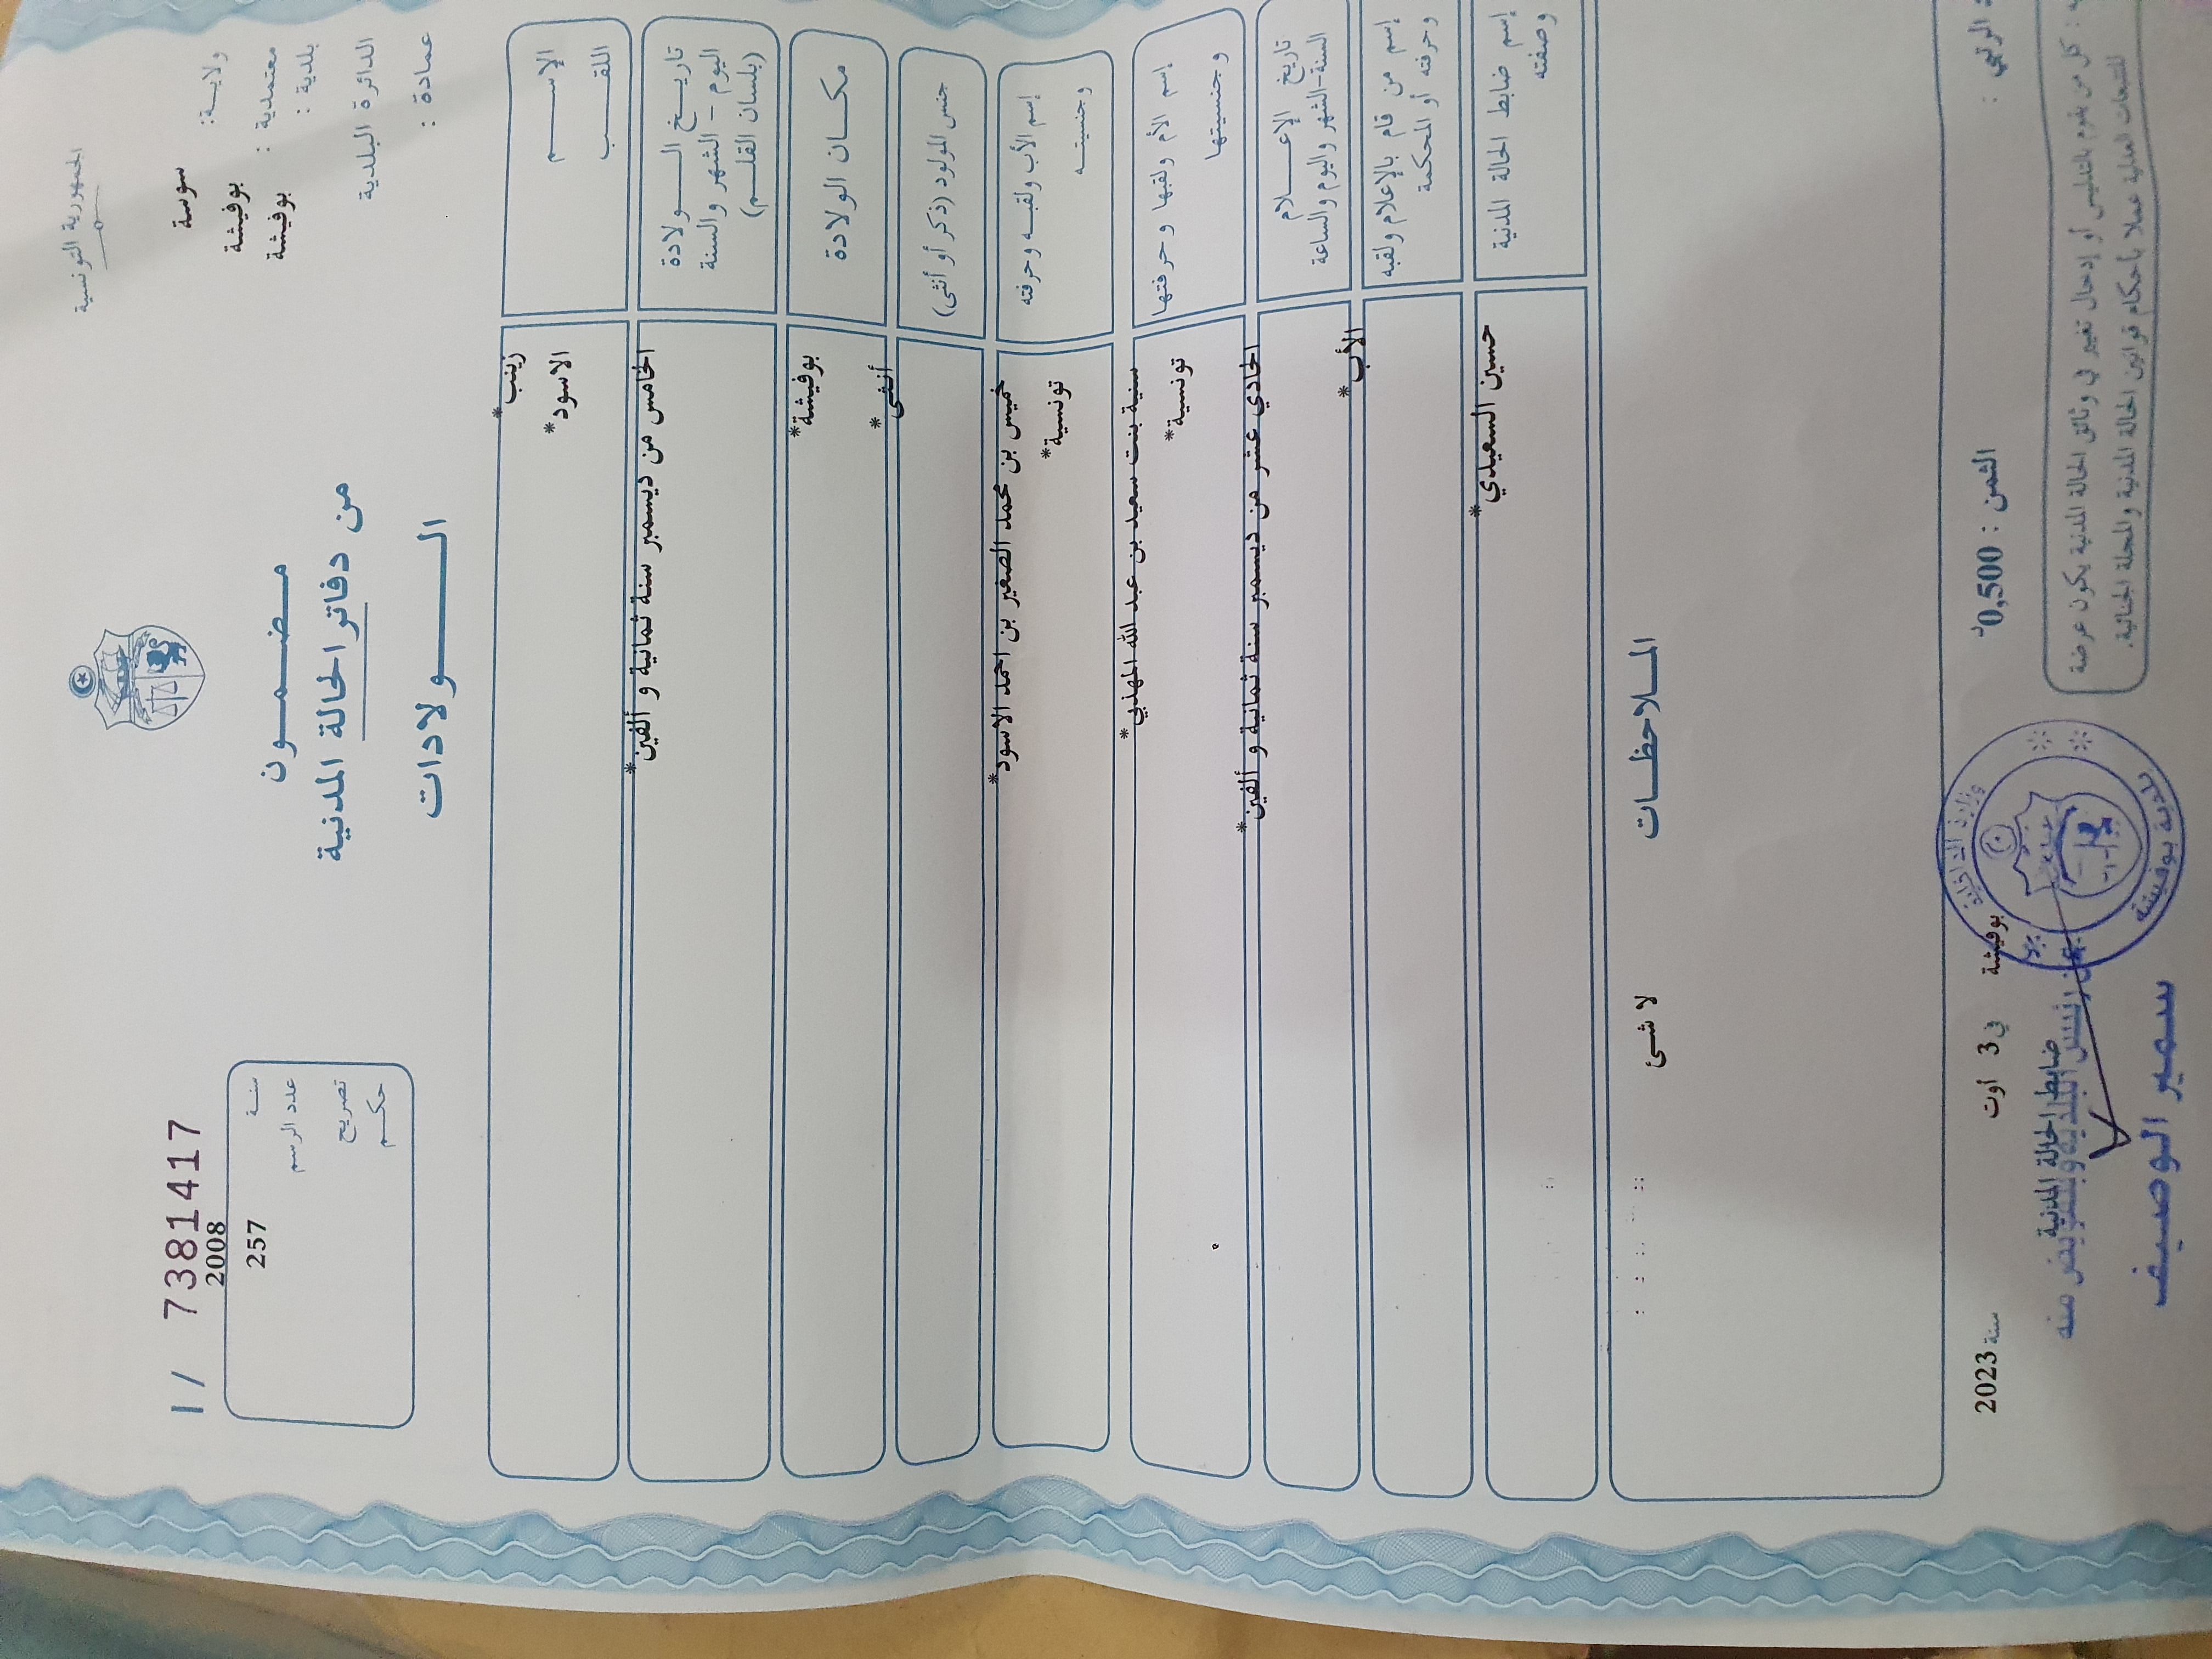 الجمهورية التونسية
ولاية: سوسة
معتمدية : بوفيشة
بلدية : بوفيشة
الدائرة البلدية
عمادة :
I / 7381417
2008 سنة
257 عدد الرسم
تصريح
حكم
مضمون
من دفاتر الحالة المدنية
الولادات
الإسم زينب*
اللقب الاسود*
تاريخ الولادة
(اليوم - الشهر والسنة
(بلسان القلم)
الخامس من ديسمبر سنة ثمانية و ألفين*
مكان الولادة بوفيشة*
جنس المولود (ذكر أو أنثى) أنثى*
إسم الأب ولقبه وحرفته خميس بن محمد الصغير بن احمد الاسود*
وجنسيته تونسية*
إسم الأم ولقبها وحرفتها سنية بنت سعيد بن عبد الله المهذبي*
وجنسيتها تونسية*
تاريخ الإعلام
السنة-الشهر واليوم والساعة
الحادي عشر من ديسمبر سنة ثمانية و ألفين*
إسم من قام بالإعلام ولقبه
وحرفته أو المحكمة
الأب*
إسم ضابط الحالة المدنية
وصفته
حسين السعيدي*
الملاحظات
لا شئ
الرتبي :
الثمن : 0,500د
بوفيشة في 3 أوت سنة 2023
ضابط الحالة المدنية
: كل من يقوم بالتدليس أو إدخال تغيير في وثائق الحالة المدنية يكون عرضة
للتتبعات العدلية عملا بأحكام قوانين الحالة المدنية والمجلة الجنائية.
وزارة الداخلية
بلدية بوفيشة
سمير الوصيف